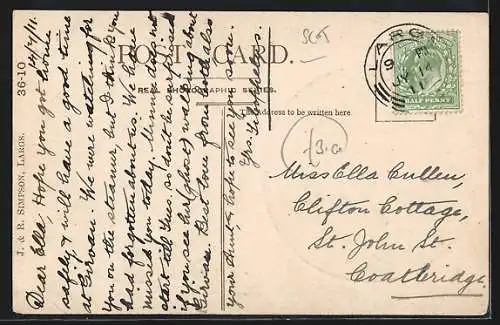 POST CARD.
REAL PHOTOGRAPHIC SERIES.
The address to be written here
J. & R. SIMPSON, LARGS. 36-10
14/7/11.
Dear Ella, Hope you got home
safely & will have a good time
at Girvan. We were watching for
you on the steamer, but I think you
had forgotten about us. We have
missed you today. Minnie does not
start till Tues. so don't be surprised
if you see her (ghost) walking about
Girvan. Best love from both also
your Aunt, & hope to see you soon.
Yrs.
SCOT
£3.00
LARGS
9
JY 14
11
HALF PENNY
Miss Ella Cullen,
Clifton Cottage,
St. John St.
Coatbridge.